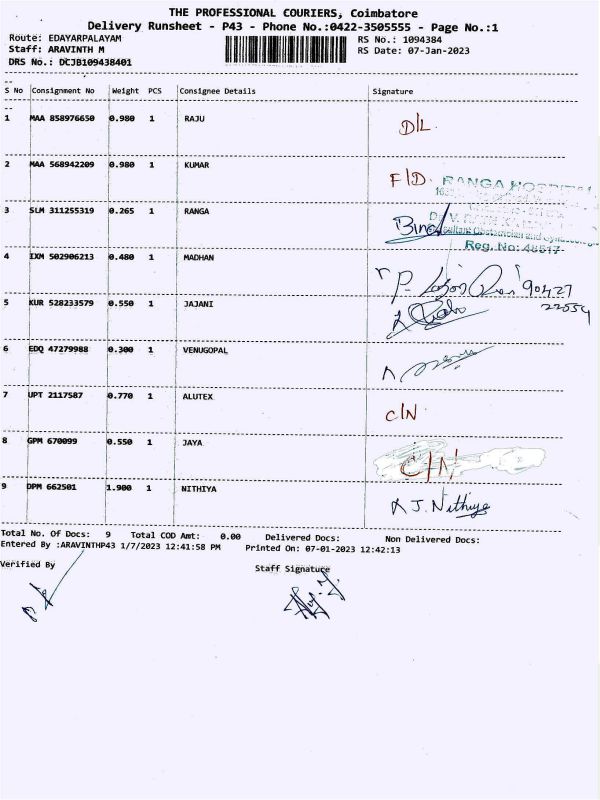 THE PROFESSIONAL COURIERS, Coimbatore
Delivery Runsheet - P43 - Phone No.:0422-3505555 - Page No.:1
Route: EDAYARPALAYAM RS No.: 1094384
Staff: ARAVINTH M RS Date: 07-Jan-2023
DRS No.: DCJB109438401
S No Consignment No Weight PCS Consignee Details Signature
1 MAA 858976650 0.980 1 RAJU D/L
2 MAA 568942209 0.980 1 KUMAR F/D.
RANGA HOSPITAL
3 SLM 311255319 0.265 1 RANGA
Reg. No: 48517
4 IXM 502906213 0.480 1 MADHAN
90427
22054
5 KUR 528233579 0.550 1 JAJANI
6 EDQ 47279988 0.300 1 VENUGOPAL
7 UPT 2117587 0.770 1 ALUTEX C/N
8 GPM 670099 0.550 1 JAYA C/N
9 DPM 662501 1.900 1 NITHIYA J. Nithiya
Total No. Of Docs: 9 Total COD Amt: 0.00 Delivered Docs: Non Delivered Docs:
Entered By :ARAVINTHP43 1/7/2023 12:41:58 PM Printed On: 07-01-2023 12:42:13
Verified By Staff Signature